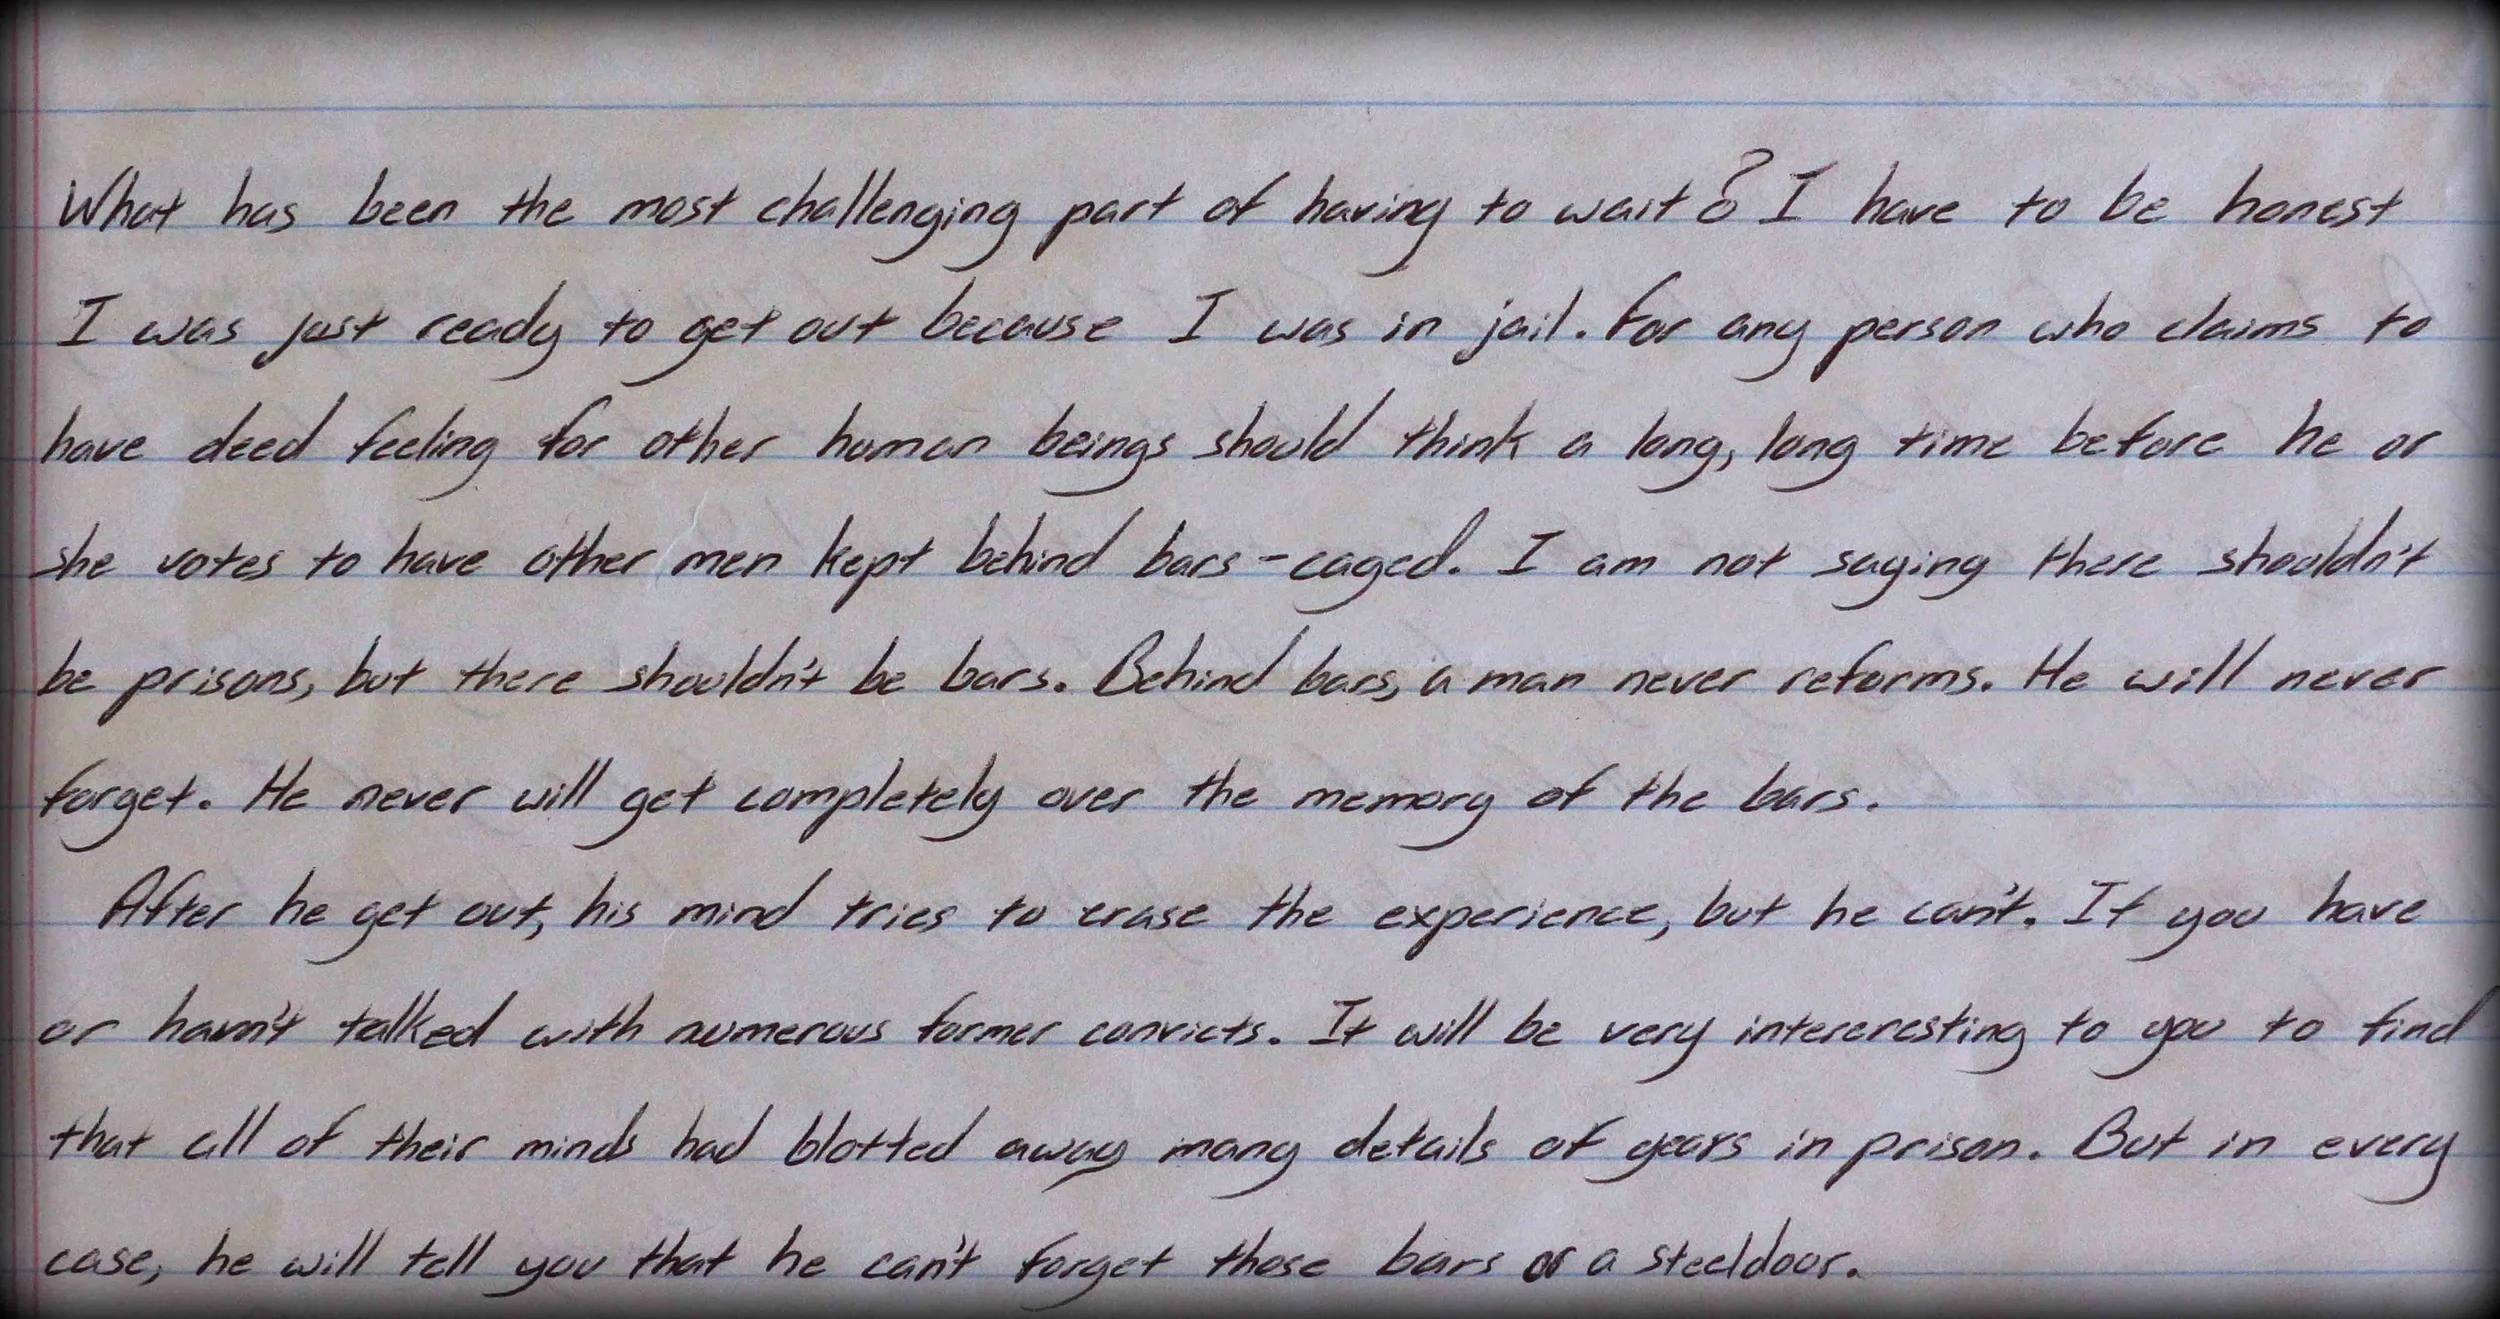 What has been the most challenging part of having to wait? I have to be honest
I was just ready to get out because I was in jail. For any person who claims to
have deed feeling for other human beings should think a long, long time before he or
she votes to have other men kept behind bars - caged. I am not saying there shouldn't
be prisons, but there shouldn't be bars. Behind bars, a man never reforms. He will never
forget. He never will get completely over the memory of the bars.
After he get out, his mind tries to erase the experience, but he can't. If you have
or havn't talked with numerous former convicts. It will be very intereresting to you to find
that all of their minds had blotted away many details of years in prison. But in every
case, he will tell you that he can't forget those bars or a steeldoor.